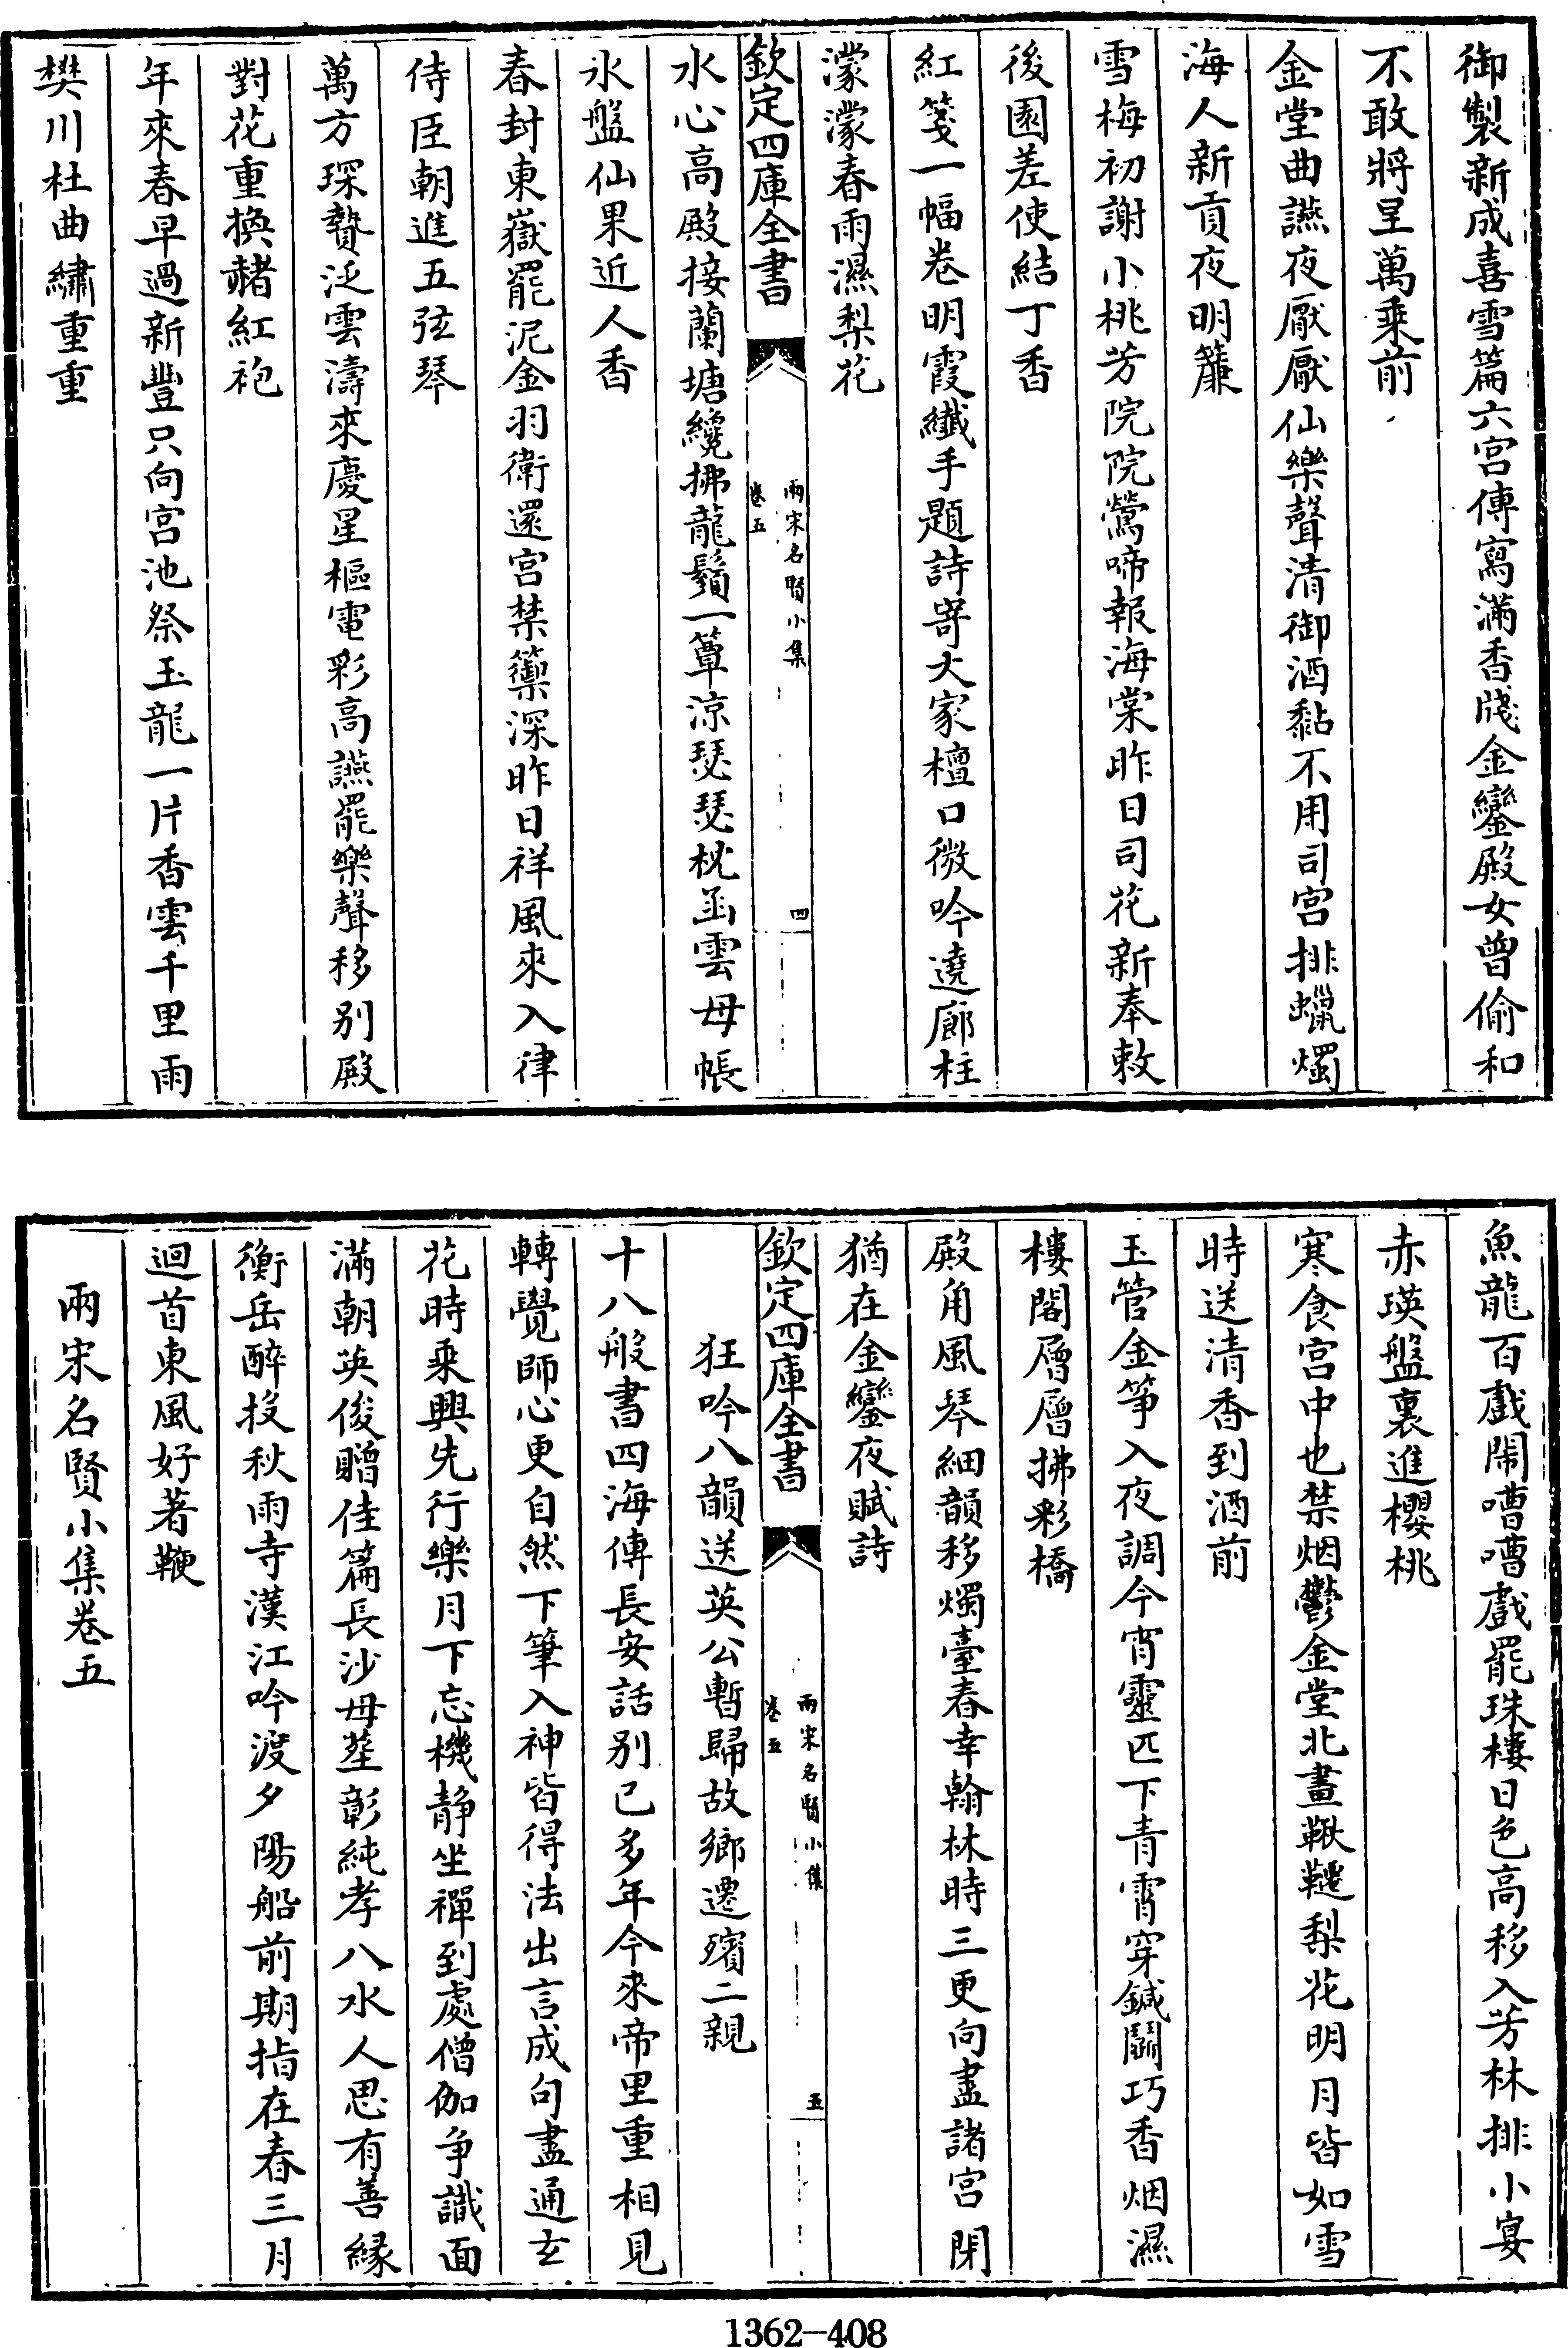 御製新成喜雪篇六宫傳寫滿香牋金鑾殿女曾偷和
不敢將呈萬乘前
金堂曲讌夜厭厭仙樂聲清御酒黏不用司宫排蠟燭
海人新貢夜明簾
雪梅初謝小桃芳院院鶯啼報海棠昨日司花新奉敕
後園差使結丁香
紅箋一幅卷明霞纖手題詩寄大家檀口微吟遶廊柱
濛濛春雨濕梨花
欽定四庫全書
兩宋名賢小集
卷五
四
水心高殿接蘭塘纔拂龍鬚一簟涼瑟瑟枕函雲母帳
氷盤仙果近人香
春封東嶽罷泥金羽衛還宫禁籞深昨日祥風來入律
侍臣朝進五弦琴
萬方琛贄泛雲濤來慶星樞電彩高讌罷樂聲移别殿
對花重換赭紅袍
年來春早過新豐只向宫池祭玉龍一片香雲千里雨
樊川杜曲繡重重
魚龍百戲鬧嘈嘈戲罷珠樓日色高移入芳林排小宴
赤瑛盤裏進櫻桃
寒食宫中也禁烟鬱金堂北畫鞦韆梨花明月皆如雪
時送清香到酒前
玉管金筝入夜調今宵靈匹下青霄穿鍼鬭巧香烟濕
樓閣層層拂彩橋
殿角風琴細韻移燭臺春幸翰林時三更向盡諸宫閉
猶在金鑾夜賦詩
欽定四庫全書
兩宋名賢小集
卷五
五
狂吟八韻送英公暫歸故鄉遷殯二親
十八般書四海傳長安話别已多年今來帝里重相見
轉覺師心更自然下筆入神皆得法出言成句盡通玄
花時乘興先行樂月下忘機静坐禪到處僧伽争識面
滿朝英俊贈佳篇長沙毋葬彰純孝八水人思有善縁
衡岳醉投秋雨寺漢江吟渡夕陽船前期指在春三月
迴首東風好著鞭
兩宋名賢小集卷五
1362—408